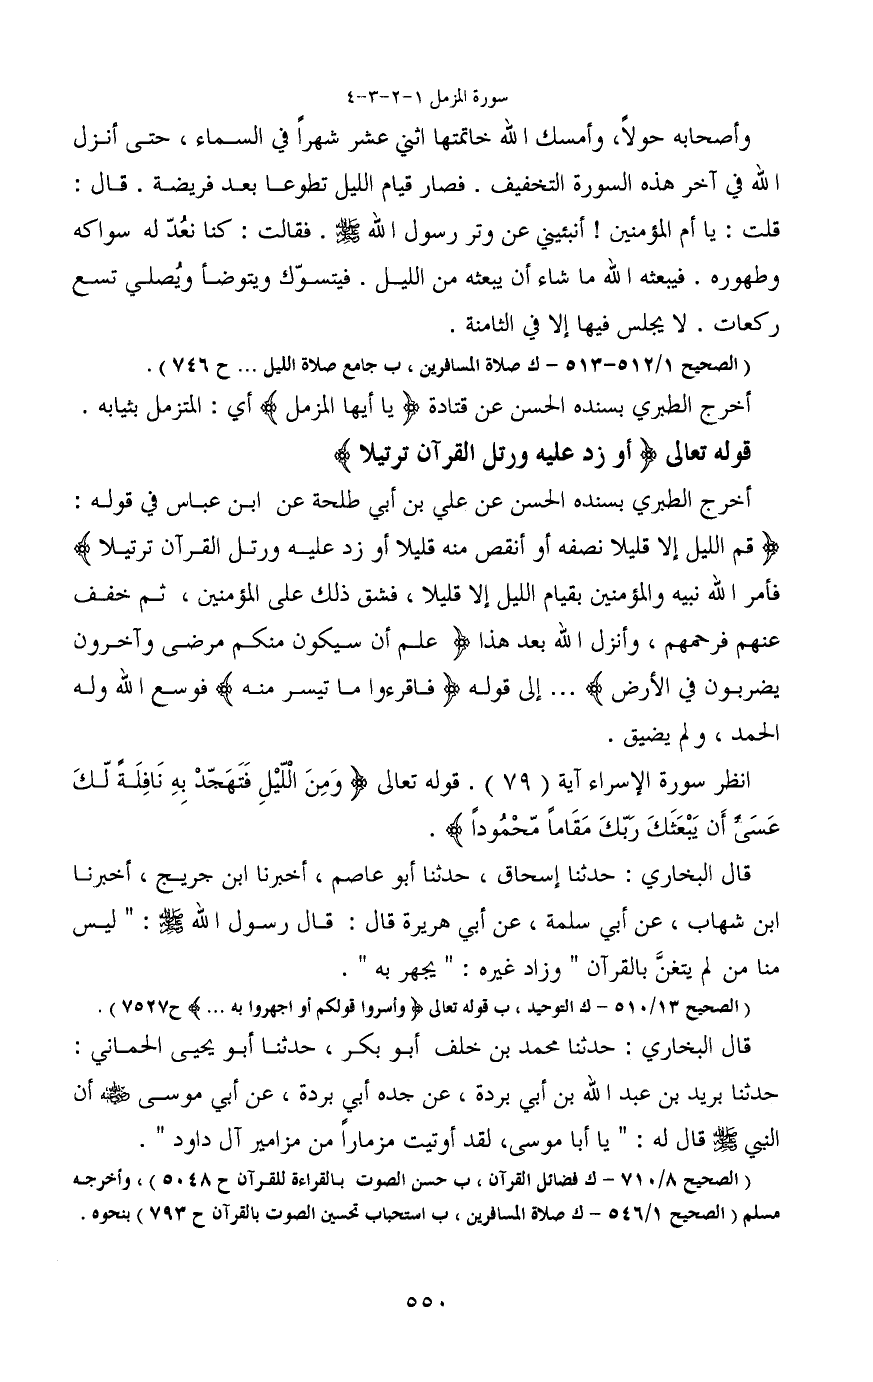 سورة المزمل ١-٢-٣-٤
وأصحابه حولاً، وأمسك الله خاتمتها اثني عشر شهراً في السماء ، حتى أنزل
الله في آخر هذه السورة التخفيف . فصار قيام الليل تطوعا بعد فريضة . قال :
قلت : يا أم المؤمنين ! أنبئيني عن وتر رسول الله ﷺ . فقالت : كنا نعُدّ له سواكه
وطهوره . فيبعثه الله ما شاء أن يبعثه من الليل . فيتسوّك ويتوضأ ويُصلي تسع
ركعات . لا يجلس فيها إلا في الثامنة .
( الصحيح ٥١٢/١-٥١٣ - ك صلاة المسافرين ، ب جامع صلاة الليل ... ح ٧٤٦ ) .
أخرج الطبري بسنده الحسن عن قتادة ﴿ يا أيها المزمل ﴾ أي : المتزمل بثيابه .
قوله تعالى ﴿ أو زد عليه ورتل القرآن ترتيلا ﴾
أخرج الطبري بسنده الحسن عن علي بن أبي طلحة عن ابن عباس في قوله :
﴿ قم الليل إلا قليلا نصفه أو أنقص منه قليلا أو زد عليه ورتل القرآن ترتيلا ﴾
فأمر الله نبيه والمؤمنين بقيام الليل إلا قليلا ، فشق ذلك على المؤمنين ، ثم خفف
عنهم فرحمهم ، وأنزل الله بعد هذا ﴿ علم أن سيكون منكم مرضى وآخرون
يضربون في الأرض ﴾ ... إلى قوله ﴿ فاقرءوا ما تيسر منه ﴾ فوسع الله وله
الحمد ، ولم يضيق .
انظر سورة الإسراء آية ( ٧٩ ) . قوله تعالى ﴿ وَمِنَ الْلّيْلِ فَتَهَجّدْ بِهِ نَافِلَةً لّكَ
عَسَىَ أَن يَبْعَثَكَ رَبّكَ مَقَاماً مّحْمُوداً ﴾ .
قال البخاري : حدثنا إسحاق ، حدثنا أبو عاصم ، أخبرنا ابن جريج ، أخبرنا
ابن شهاب ، عن أبي سلمة ، عن أبي هريرة قال : قال رسول الله ﷺ : " ليس
منا من لم يتغنَّ بالقرآن " وزاد غيره : " يجهر به " .
( الصحيح ٥١٠/١٣ - ك التوحيد ، ب قوله تعالى ﴿ وأسروا قولكم أو اجهروا به ... ﴾ ح٧٥٢٧ ) .
قال البخاري : حدثنا محمد بن خلف أبو بكر ، حدثنا أبو يحيى الحماني :
حدثنا بريد بن عبد الله بن أبي بردة ، عن جده أبي بردة ، عن أبي موسى رضي الله عنه أن
النبي ﷺ قال له : " يا أبا موسى، لقد أوتيت مزماراً من مزامير آل داود " .
( الصحيح ٧١٠/٨ - ك فضائل القرآن ، ب حسن الصوت بالقراءة للقرآن ح ٥٠٤٨ ) ، وأخرجه
مسلم ( الصحيح ٥٤٦/١ - ك صلاة المسافرين ، ب استحباب تحسين الصوت بالقرآن ح ٧٩٣ ) بنحوه .
٥٥٠